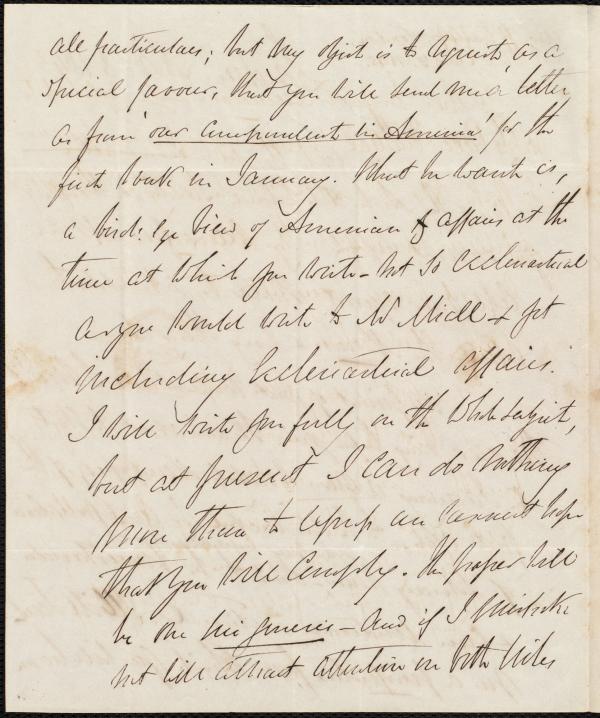 all particulars; but my object is to request, as a
special favour, that you will send me a letter
as from 'our correspondent in America' for the
first week in January. What we want is,
a bird's eye view of American affairs at the
time at which you write – not so ecclesiastical
as you would write to Mr Miall & yet
including Ecclesiastical affairs.
I will write you fully on the whole subject,
but at present I can do nothing
more than to express an earnest hope
that you will comply. The paper will
be one sui generis – and if I mistake
not will attract attention on both sides